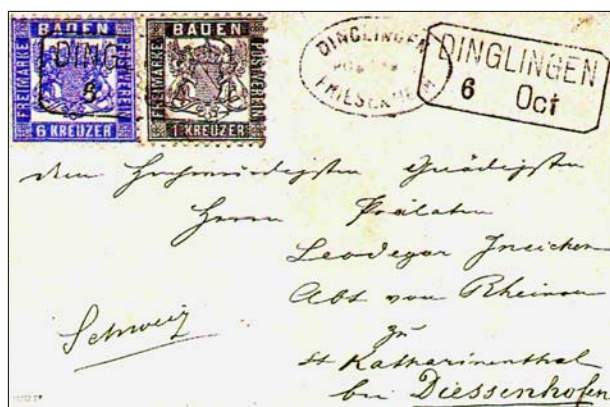 BADEN
FREIMARKE
POSTVEREIN
6 KREUZER
BADEN
FREIMARKE
POSTVEREIN
1 KREUZER
DING
6
DINGLINGEN
FRIESENHEIM
DINGLINGEN
6 Oct
dem Hochwürdigsten Gnädigsten
Herrn Prälaten
Leodegar Ineichen
Abt von Rheinau
zu
St Katharinenthal
bei Diessenhofen
Schweiz